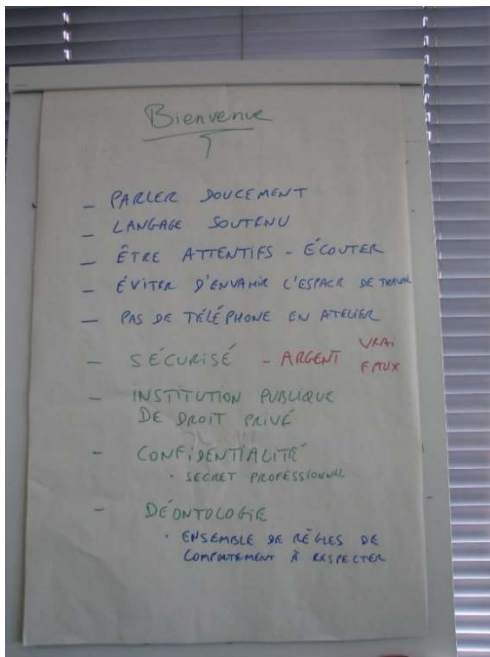 Bienvenue
- PARLER DOUCEMENT
- LANGAGE SOUTENU
- ÊTRE ATTENTIFS - ÉCOUTER
- ÉVITER D'ENVAHIR L'ESPACE DE TRAVAIL
- PAS DE TÉLÉPHONE EN ATELIER
- SÉCURISÉ - ARGENT VRAI
FAUX
- INSTITUTION PUBLIQUE
DE DROIT PRIVÉ
- CONFIDENTIALITÉ
· SECRET PROFESSIONNEL
- DÉONTOLOGIE
· ENSEMBLE DE RÈGLES DE
COMPORTEMENT À RESPECTER